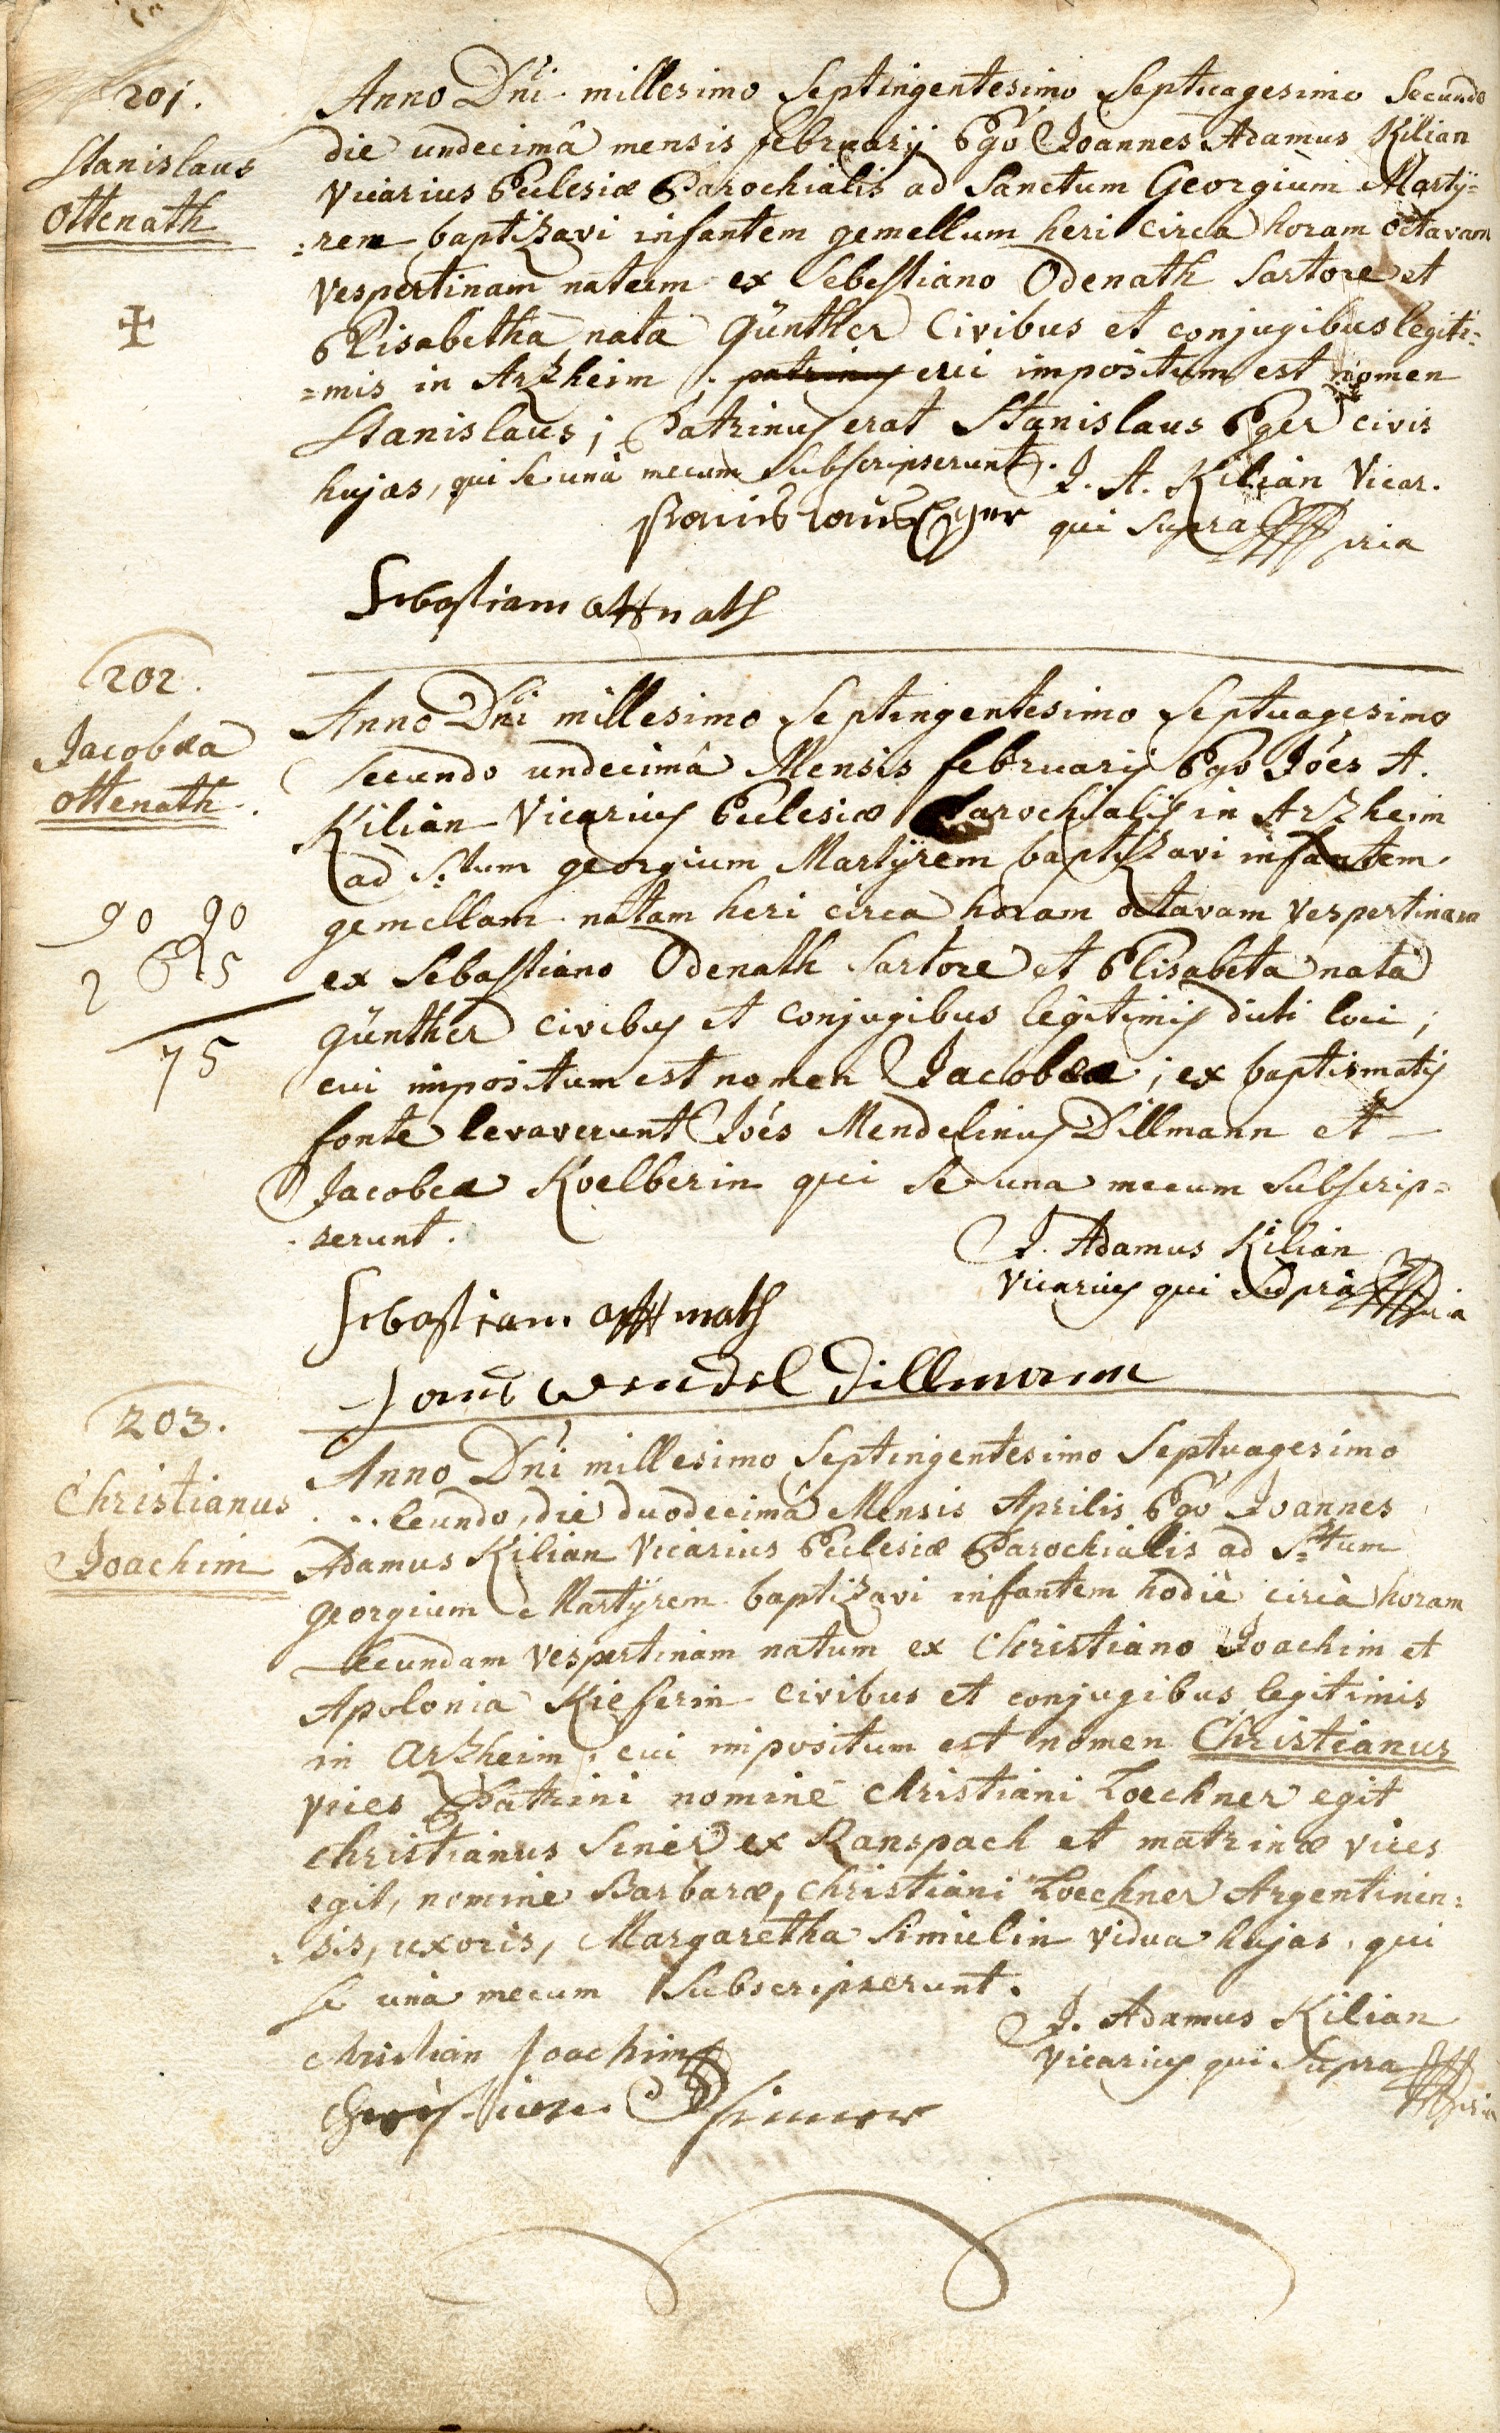 201.
Stanislaus
Ottenath
Anno Dni millesimo Septingentesimo Septuagesimo Secundo
die undecimâ mensis februarÿ Ego Joannes Adamus Kilian
Vicarius Ecclesiæ Parochialis ad Sanctum Georgium Martÿ=
=rem baptizavi infantem gemellum heri circa horam octavam
Vespertinam natum ex Sebastiano Odenath Sartore et
Elisabetha nata Günther Civibus et conjugibus legiti=
=mis in Arzheim . patrinus cui impositum est nomen
Stanislaus; Patrinus erat Stanislaus Eger civis
hujas, qui se unà mecum Subscripserunt. J. A. Kilian Vicar.
Stanislaus Eger qui Supra pria
Sebastian Ottnath
202.
Jacobæa
Ottenath.
Anno Dni millesimo Septingentesimo Septuagesimo
secundo undecimâ Mensis februarij Ego Jóes A.
Kilian Vicarius Ecclesiæ Parochialis in Arzheim
ad S:tum georgium Martÿrem baptizavi infantem
gemellam natam heri circa horam octavam Vespertinam
ex Sebastiano Odenath Sartore et Elisabeta nata
günther civibus et conjugibus legitimis dicti loci;
cui impositum est nomen Jacobæa; ex baptismatis
fonte levaverunt Jóes Mendelinus Dillmann et
Jacobea Koelberin qui se una mecum subscrip=
serunt.
90 90
2 65
75
J. Adamus Kilian
Vicarius qui Supra pria
Sebastian Ottnath
Hans Wendel Dillmann
203.
Christianus
Joachim
Anno Dni millesimo Septingentesimo Septuagesimo
secundo, die duodecimâ Mensis Aprilis Ego Joannes
Adamus Kilian Vicarius Ecclesiæ Parochialis ad S:tum
georgium Martÿrem baptizavi infantem hodie circà horam
secundam Vespertinam natum ex Christiano Joachim et
Apolonia Kieferin civibus et conjugibus legitimis
in Arzheim, cui impositum est nomen Christianus
vices Patrini nomine Christiani Loechner egit
Christianus Siner ex Ranspach et matrinæ vices
egit, nomine Barbaræ, Christiani Loechner Argentinen=
=sis, uxoris, Margaretha Simulin vidua hujas, qui
se unà mecum Subscripserunt.
J. Adamus Kilian
Vicarius qui Supra pria
Christian Joachim
Christian Sinner